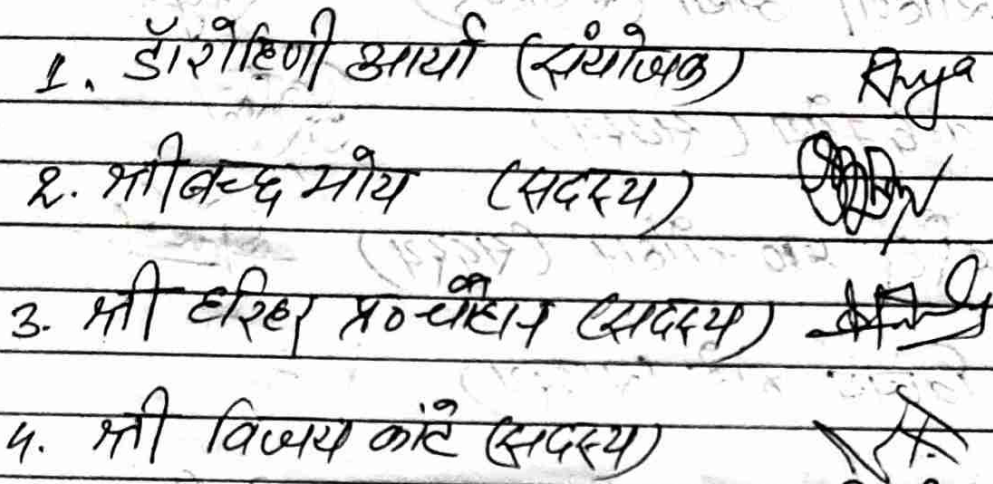 1. डॉ रोहिणी आर्या (संयोजक) Rnya
2. श्री मोर्य (सदस्य)
3. श्री हरिहर प्र० चौहान (सदस्य)
4. श्री विजय कांटे (सदस्य)